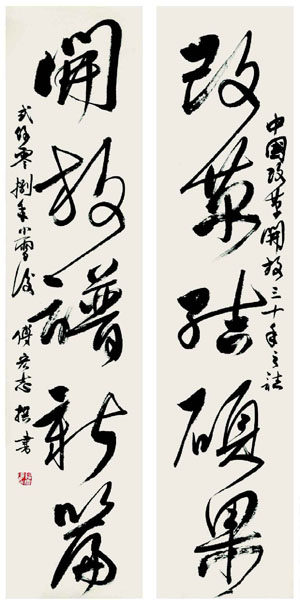 中國改革開放三十年之誌
改革結碩果
開放譜新篇
弍仟零捌年小雪後 傅 志 撰書